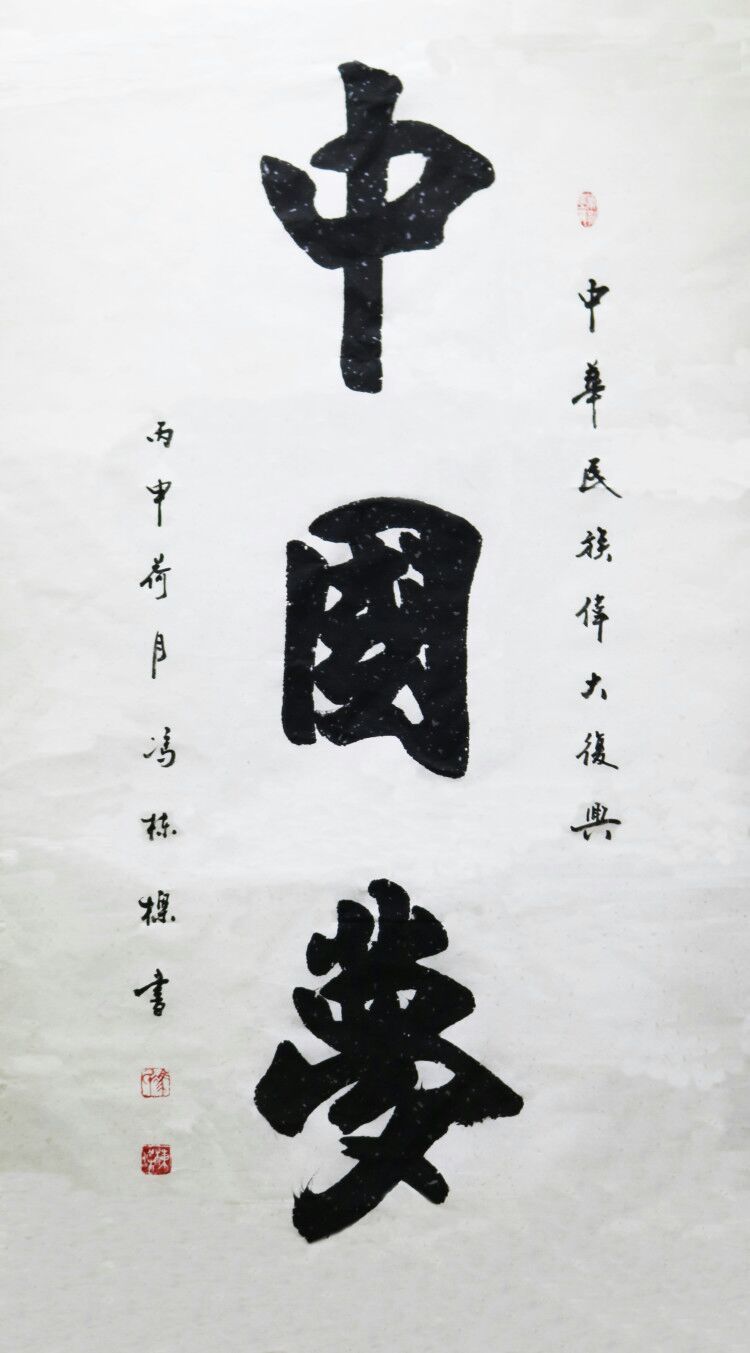 中華民族偉大復興
中國夢
丙申荷月冯栋樑書